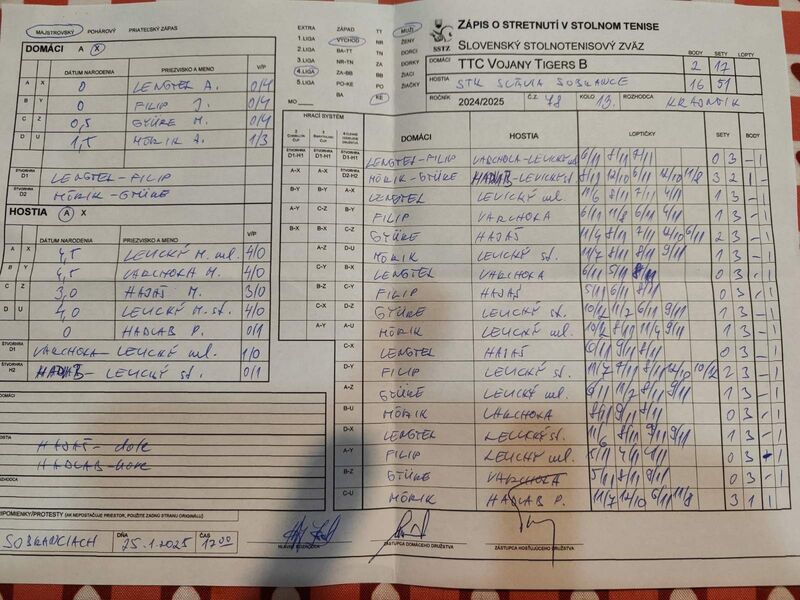 MAJSTROVSKÝ POHÁROVÝ PRIATEĽSKÝ ZÁPAS
DOMÁCI A X
DÁTUM NARODENIA PRIEZVISKO A MENO V/P
A X 0 LENGYEL A. 0/4
B Y 0 FILIP J. 0/4
C Z 0,5 GYÜRE M. 0/4
D U 1,5 MÖRIK A. 1/3
ŠTVORHRA D1 LENGYEL-FILIP
ŠTVORHRA D2 MÖRIK-GYÜRE
HOSTIA A X
DÁTUM NARODENIA PRIEZVISKO A MENO V/P
A X 4,5 LEVICKÝ M. ml. 4/0
B Y 4,5 VARCHOLA M. 4/0
C Z 3,0 HAJAŠ M. 3/0
D U 4,0 LEVICKÝ M. st. 4/0
0 HADLAB P. 0/1
ŠTVORHRA D1 VARCHOLA-LEVICKÝ ml. 1/0
ŠTVORHRA H2 LEVICKÝ st. 0/1
DOMÁCI
HOSTIA
HAJAŠ-dole
HADLAB-hore
ROZHODCA
PRIPOMIENKY/PROTESTY (AK NEPOSTAČUJE PRIESTOR, POUŽITE ZADNÚ STRANU ORIGINÁLU)
SOBRANCIACH DŇA 25.1.2025 ČAS 17 00
HLAVNÝ ROZHODCA
ZÁSTUPCA DOMÁCEHO DRUŽSTVA
ZÁSTUPCA HOSŤUJÚCEHO DRUŽSTVA
EXTRA ZÁPAD TT MUŽI
1.LIGA VÝCHOD NR ŽENY
2.LIGA BA-TT TN DORCI
3.LIGA NR-TN ZA DORKY
4.LIGA ZA-BB BB ŽIACI
5.LIGA PO-KE PO ŽIAČKY
MO BA KE
SSTZ
ZÁPIS O STRETNUTÍ V STOLNOM TENISE
SLOVENSKÝ STOLNOTENISOVÝ ZVÄZ
BODY SETY LOPTY
DOMÁCI TTC VOJANY TIGERS B 2 17
HOSTIA STK SLÁVIA SOBRANCE 16 51
ROČNÍK 2024/2025 Č.Z. 78 KOLO 13. ROZHODCA
HRACÍ SYSTÉM
DOMÁCI HOSTIA LOPTIČKY SETY BODY
D1-H1 D1-H1 D1-H1 LENGYEL-FILIP VARCHOLA-LEVICKÝ ml. 6/11 8/11 7/11 0 3 - 1
A-X A-X D2-H2 MÖRIK-GYÜRE LEVICKÝ st. 8/11 12/10 6/11 12/10 11/8 3 2 1 -
B-Y B-Y A-X LENGYEL LEVICKÝ ml. 11/6 8/11 7/11 4/11 1 3 - 1
A-Y C-Z B-Y FILIP VARCHOLA 6/11 11/8 6/11 4/11 1 3 - 1
B-X B-X C-Z GYÜRE HAJAŠ 11/4 8/11 7/11 12/10 6/11 2 3 - 1
A-Z D-U MÖRIK LEVICKÝ st. 11/7 8/11 8/11 9/11 1 3 - 1
C-Y B-X LENGYEL VARCHOLA 6/11 5/11 8/11 0 3 - 1
B-Z C-Y FILIP HAJAŠ 5/11 6/11 8/11 0 3 - 1
C-X D-Z GYÜRE LEVICKÝ st. 10/12 11/2 6/11 9/11 1 3 - 1
A-Y A-U MÖRIK LEVICKÝ ml. 10/12 8/11 11/4 9/11 1 3 - 1
C-X LENGYEL HAJAŠ 10/11 9/11 8/11 0 3 - 1
D-Y FILIP LEVICKÝ st. 11/7 7/11 8/11 12/10 10/12 2 3 - 1
A-Z GYÜRE LEVICKÝ ml. 6/11 11/2 7/11 8/11 1 3 - 1
B-U MÖRIK VARCHOLA 8/11 9/11 8/11 0 3 - 1
D-X LENGYEL LEVICKÝ st. 11/6 8/11 9/11 9/11 1 3 - 1
A-Y FILIP LEVICKÝ ml. 5/11 4/11 4/11 0 3 - 1
B-Z GYÜRE VARCHOLA 5/11 8/11 8/11 0 3 - 1
C-U MÖRIK HADLAB P. 11/7 12/10 6/11 11/8 3 1 1